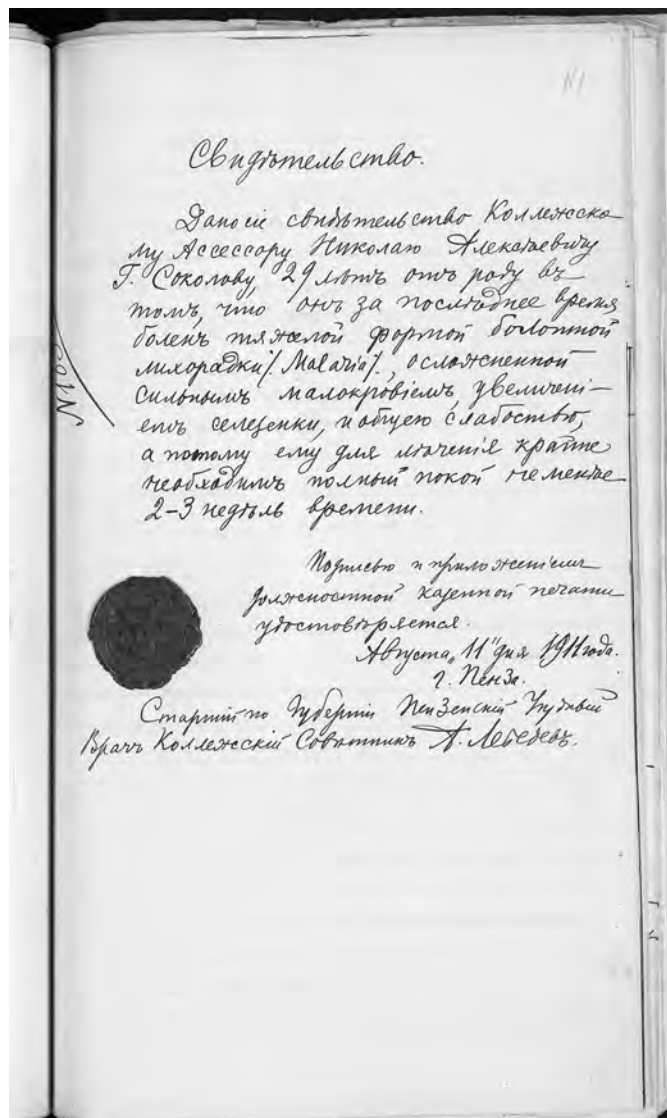 Свидѣтельство.
Дано сіе свидѣтельство Коллежско-
му Ассессору Николаю Алексѣевичу
Г. Соколову, 29 лѣтъ отъ роду въ
томъ, что онъ за послѣднее время
боленъ тяжелой формой болотной
лихорадки /. Malaria /., осложненной
сильнымъ малокровіемъ, увеличені-
емъ селезенки, и общею слабостью,
а потому ему для лѣченія крайне
необходимъ полный покой не менѣе
2-3 недѣль времени.
Подписью и приложеніемъ
должностной казенной печати
удостовѣряется.
Августа „11" дня 1911 года.
г. Пенза.
Старшій по Губерніи Пензенскій Уѣздный
Врачъ Коллежскій Совѣтникъ А. Лебедевъ.